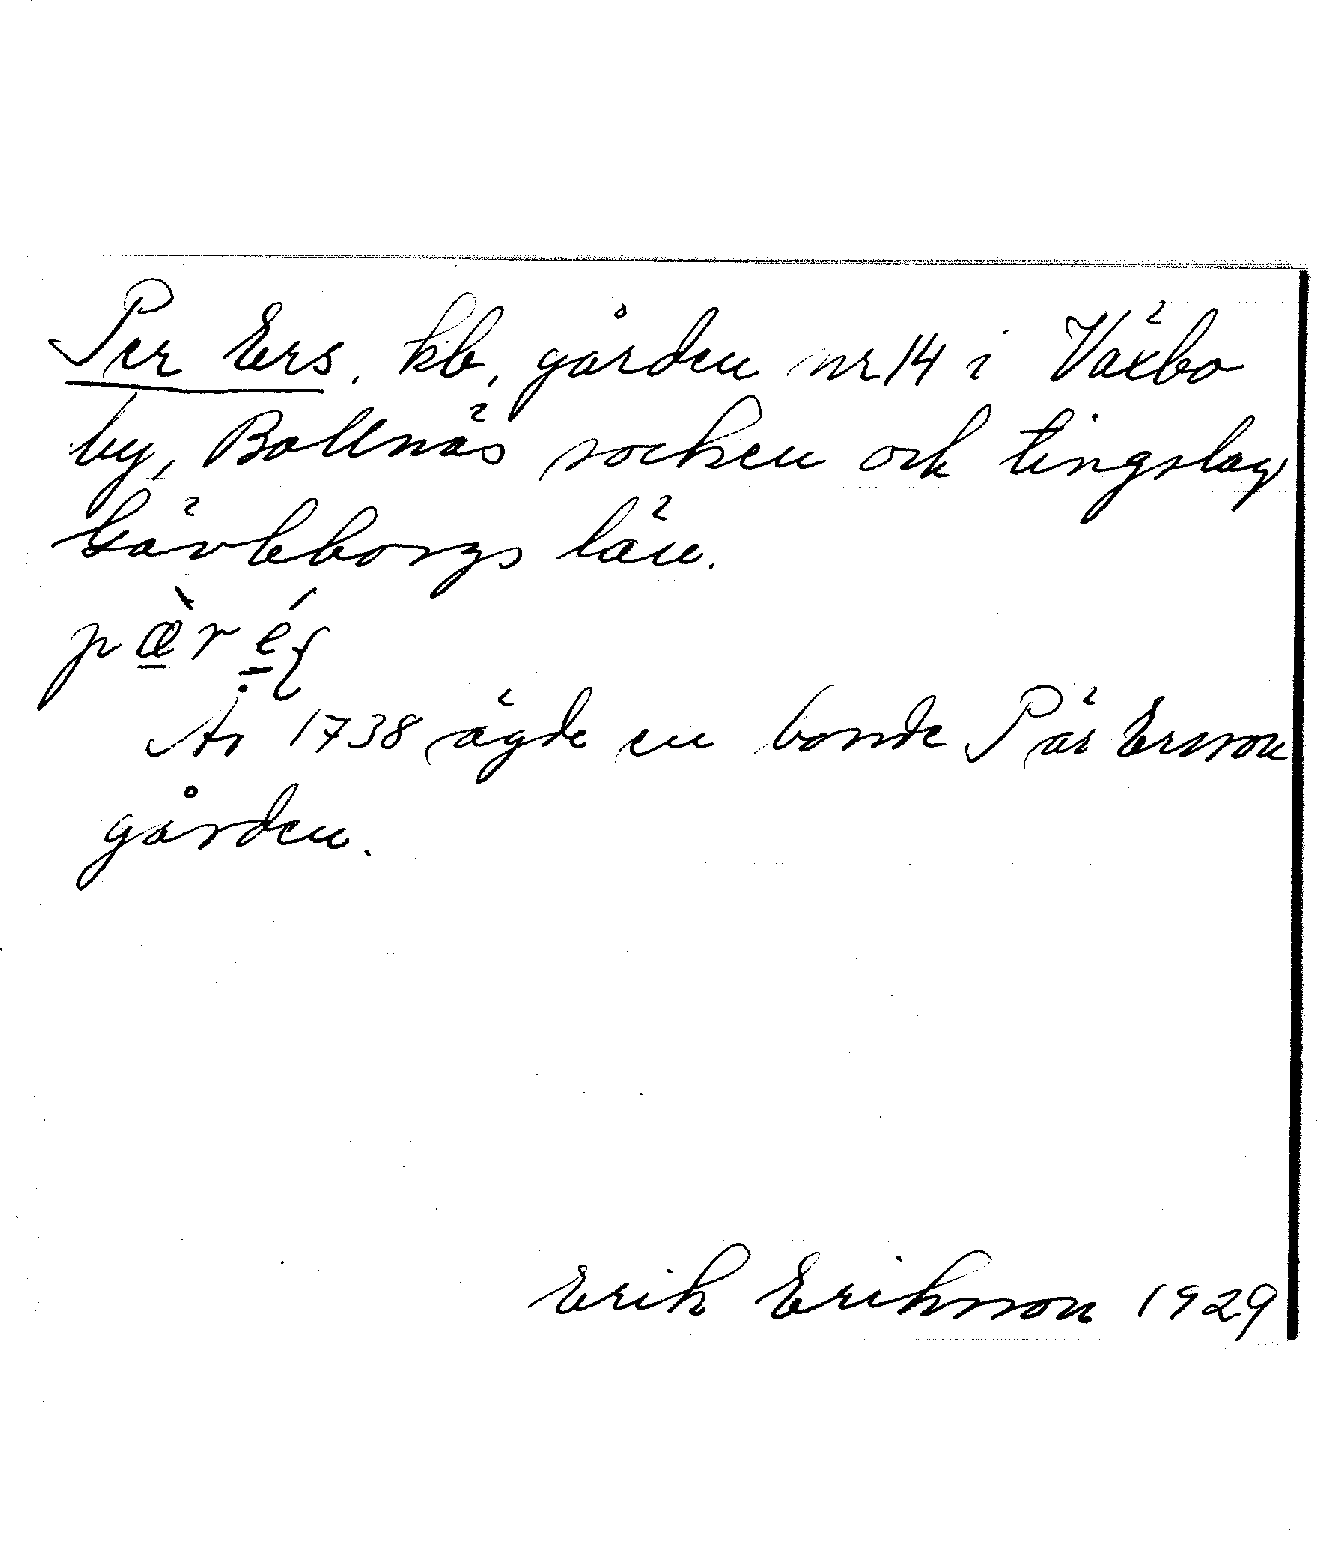 Per Ers. kb, gården nr 14 i Växbo
by, Bollnäs socken och tingslag
Gävleborgs län.
År 1738 ägde en bonde Pär Ersson
gården.
Erik Eriksson 1929